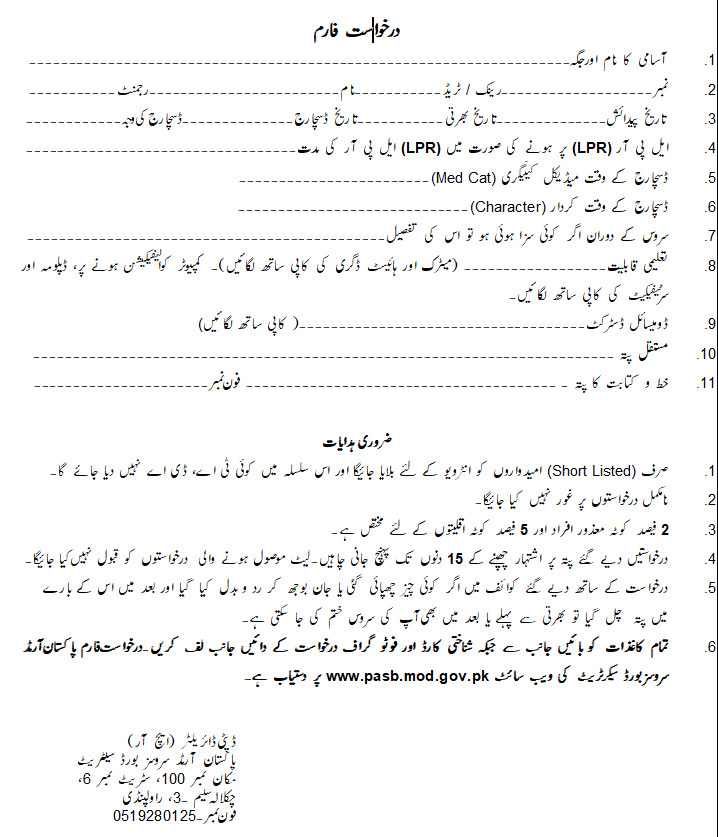 درخواست فارم
1. آسامی کا نام اور جگہ______________________
2. نمبر____________رینک / ٹریڈ____________نام____________رجمنٹ____________
3. تاریخ پیدائش____________تاریخ بھرتی____________تاریخ ڈسچارج____________ڈسچارج کی وجہ____________
4. ایل پی آر (LPR) پر ہونے کی صورت میں (LPR) ایل پی آر کی مدت____________
5. ڈسچارج کے وقت میڈیکل کیٹیگری (Med Cat)____________
6. ڈسچارج کے وقت کردار (Character)____________
7. سروس کے دوران اگر کوئی سزا ہوئی ہو تو اس کی تفصیل____________
8. تعلیمی قابلیت____________ (میٹرک اور ہائیسٹ ڈگری کی کاپی ساتھ لگائیں)۔ کمپیوٹر کوالیفیکیشن ہونے پر، ڈپلومہ اور
سرٹیفیکیٹ کی کاپی ساتھ لگائیں۔
9. ڈومیسائل ڈسٹرکٹ____________( کاپی ساتھ لگائیں)
10. مستقل پتہ ____________
11. خط و کتابت کا پتہ ____________ فون نمبر____________
ضروری ہدایات
1. صرف (Short Listed) امیدواروں کو انٹرویو کے لئے بلایا جائیگا اور اس سلسلہ میں کوئی ٹی اے، ڈی اے نہیں دیا جائے گا۔
2. نامکمل درخواستوں پر غور نہیں کیا جائیگا۔
3. 2 فیصد کوٹہ معذور افراد اور 5 فیصد کوٹہ اقلیتوں کے لئے مختص ہے۔
4. درخواستیں دیے گئے پتہ پر اشتہار چھپنے کے 15 دنوں تک پہنچ جانی چاہیں۔ لیٹ موصول ہونے والی درخواستوں کو قبول نہیں کیا جائیگا۔
5. درخواست کے ساتھ دیے گئے کوائف میں اگر کوئی چیز چھپائی گئی یا جان بوجھ کر رد و بدل کیا گیا اور بعد میں اس کے بارے
میں پتہ چل گیا تو بھرتی سے پہلے یا بعد میں بھی آپ کی سروس ختم کی جا سکتی ہے۔
6. تمام کاغذات کو بائیں جانب سے جبکہ شناختی کارڈ اور فوٹو گراف درخواست کے دائیں جانب لف کریں۔ درخواست فارم پاکستان آرمڈ
سروسز بورڈ سیکرٹریٹ کی ویب سائٹ www.pasb.mod.gov.pk پر دستیاب ہے۔
ڈپٹی ڈائریکٹر (ایچ آر)
پاکستان آرمڈ سروسز بورڈ سیکٹریٹ
مکان نمبر 100، سٹریٹ نمبر 6،
چکلالہ سکیم -3، راولپنڈی
فون نمبر-0519280125